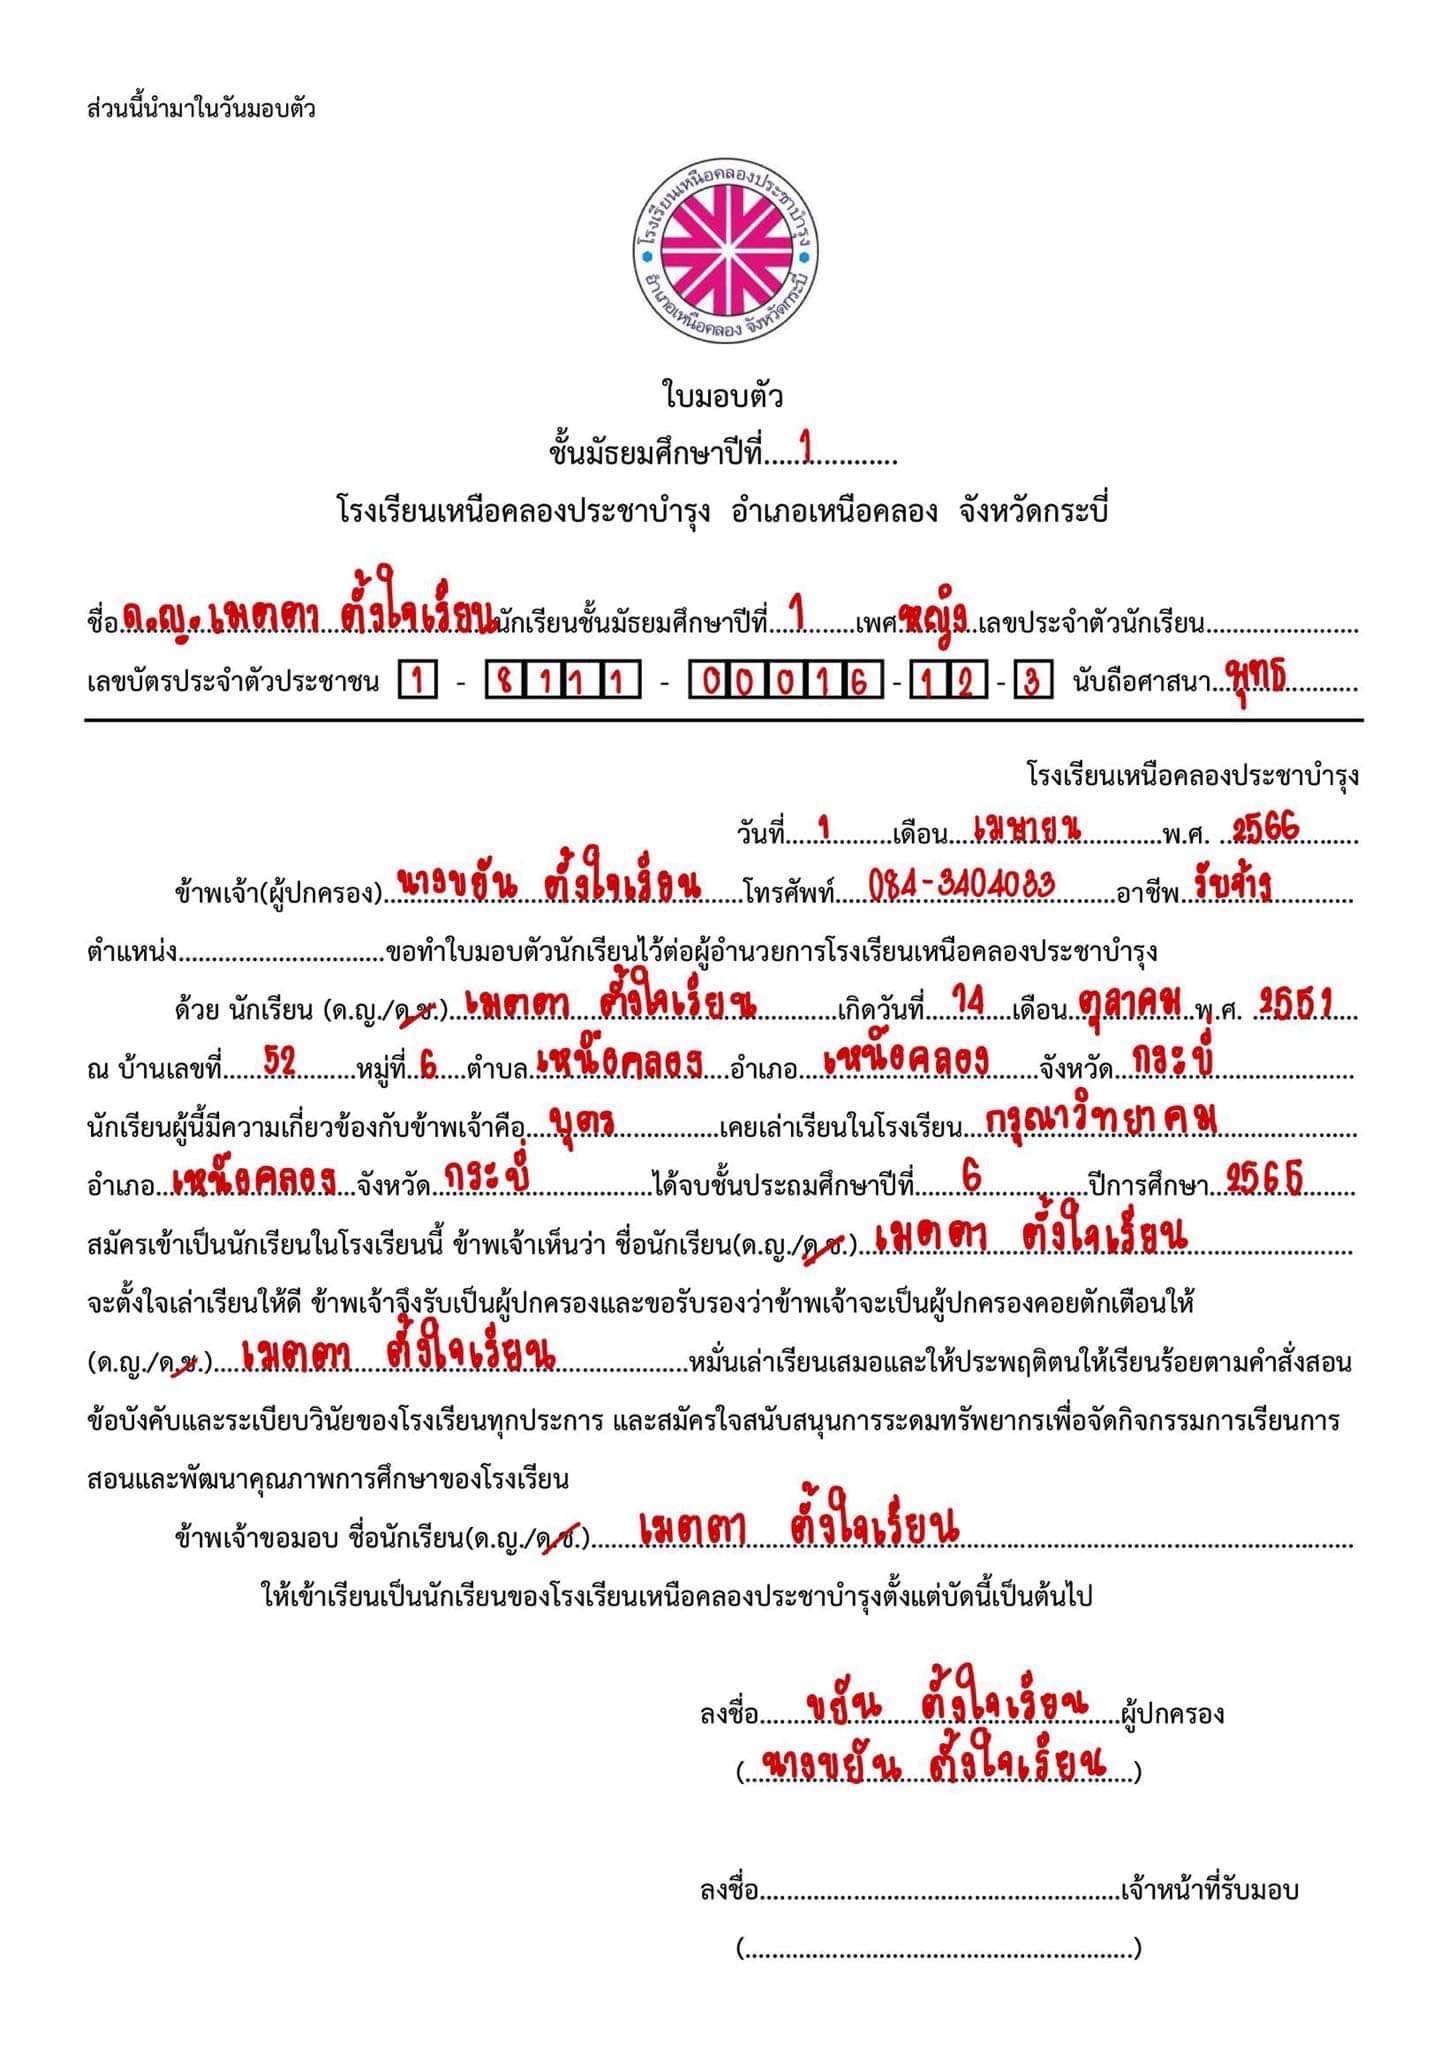 ส่วนนี้นำมาในวันมอบตัว
โรงเรียนเหนือคลองประชาบำรุง
อำเภอเหนือคลอง จังหวัดกระบี่
ใบมอบตัว
ชั้นมัธยมศึกษาปีที่.....1.................
โรงเรียนเหนือคลองประชาบำรุง อำเภอเหนือคลอง จังหวัดกระบี่
ชื่อ ด.ญ. เมตตา ตั้งใจเรียน นักเรียนชั้นมัธยมศึกษาปีที่...1........เพศ หญิง เลขประจำตัวนักเรียน.......................
เลขบัตรประจำตัวประชาชน 1 - 8111 - 00016 - 12 - 3 นับถือศาสนา..พุทธ...........
โรงเรียนเหนือคลองประชาบำรุง
วันที่.....1.........เดือน....เมษายน............พ.ศ. ..2566.........
ข้าพเจ้า(ผู้ปกครอง)..นางขยัน ตั้งใจเรียน......โทรศัพท์.....084-3404033.........อาชีพ..รับจ้าง............
ตำแหน่ง...............................ขอทำใบมอบตัวนักเรียนไว้ต่อผู้อำนวยการโรงเรียนเหนือคลองประชาบำรุง
ด้วย นักเรียน (ด.ญ./ด.ช.)...เมตตา ตั้งใจเรียน............เกิดวันที่....14....เดือน.ตุลาคม..พ.ศ. .2551....
ณ บ้านเลขที่......52.........หมู่ที่..6....ตำบล.เหนือคลอง....อำเภอ....เหนือคลอง.......จังหวัด...กระบี่.....................
นักเรียนผู้นี้มีความเกี่ยวข้องกับข้าพเจ้าคือ....บุตร................เคยเล่าเรียนในโรงเรียน....กรุณาวิทยาคม.....................
อำเภอ..เหนือคลอง...จังหวัด..กระบี่...................ได้จบชั้นประถมศึกษาปีที่.......6................ปีการศึกษา...2565........
สมัครเข้าเป็นนักเรียนในโรงเรียนนี้ ข้าพเจ้าเห็นว่า ชื่อนักเรียน(ด.ญ./ด.ช.)...เมตตา ตั้งใจเรียน.........................
จะตั้งใจเล่าเรียนให้ดี ข้าพเจ้าจึงรับเป็นผู้ปกครองและขอรับรองว่าข้าพเจ้าจะเป็นผู้ปกครองคอยตักเตือนให้
(ด.ญ./ด.ช.).....เมตตา ตั้งใจเรียน....................หมั่นเล่าเรียนเสมอและให้ประพฤติตนให้เรียนร้อยตามคำสั่งสอน
ข้อบังคับและระเบียบวินัยของโรงเรียนทุกประการ และสมัครใจสนับสนุนการระดมทรัพยากรเพื่อจัดกิจกรรมการเรียนการ
สอนและพัฒนาคุณภาพการศึกษาของโรงเรียน
ข้าพเจ้าขอมอบ ชื่อนักเรียน(ด.ญ./ด.ช.).......เมตตา ตั้งใจเรียน............................................................
ให้เข้าเรียนเป็นนักเรียนของโรงเรียนเหนือคลองประชาบำรุงตั้งแต่บัดนี้เป็นต้นไป
ลงชื่อ.......ขยัน ตั้งใจเรียน.....ผู้ปกครอง
(...นางขยัน ตั้งใจเรียน....)
ลงชื่อ......................................................เจ้าหน้าที่รับมอบ
(..........................................................)